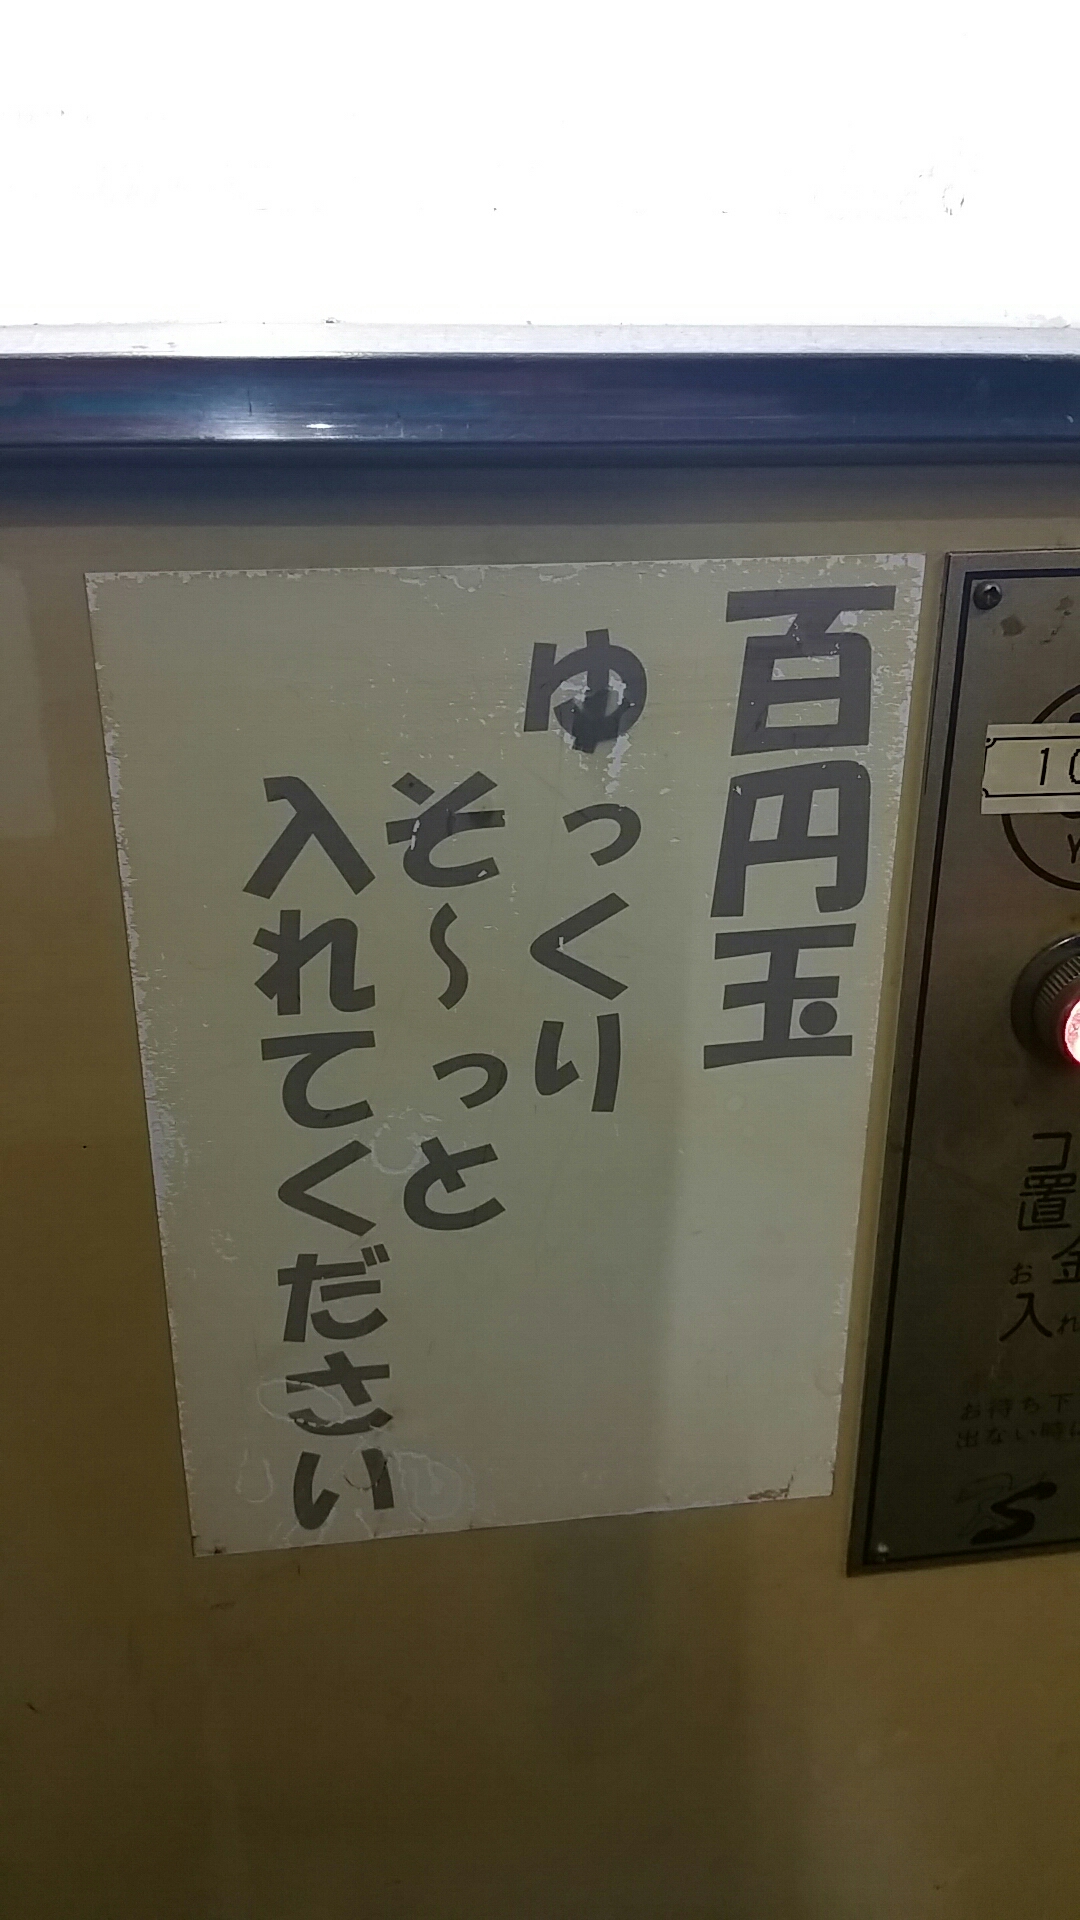 百円玉
ゆっくり
そ〜っと
入れてください
10
Y
コ
置
金
お入れ
お待ち下
出ない時に
S